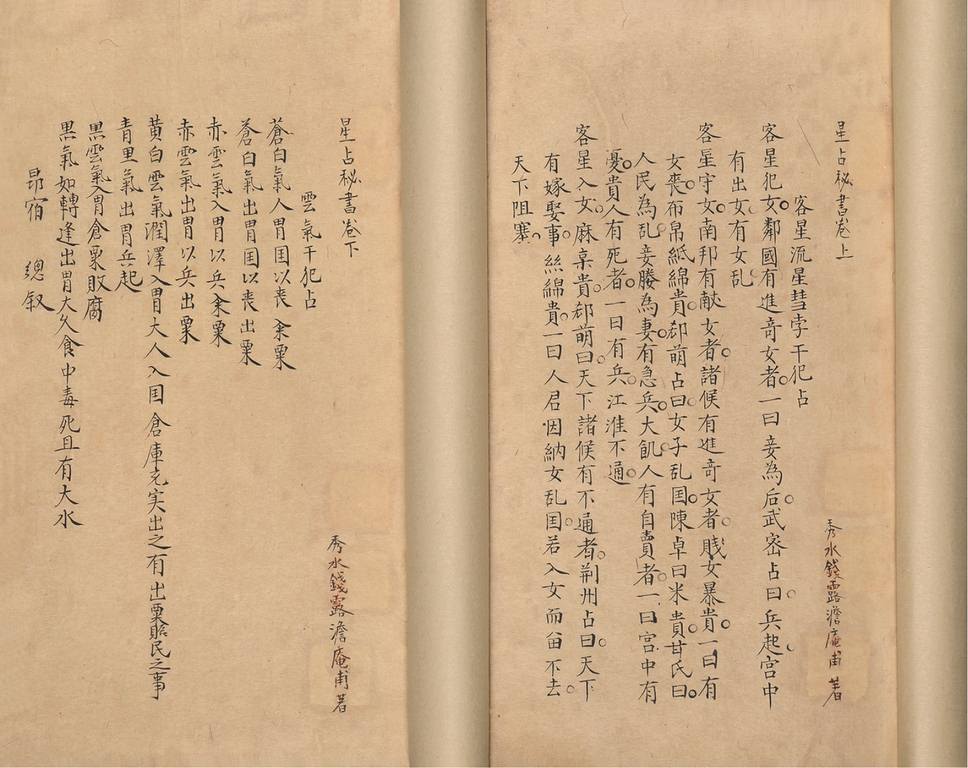 星占秘書卷上
秀水錢露澹庵甫著
客星流星彗孛干犯占
客星犯女鄰國有進奇女者一曰妾為后武密占曰兵起宮中
有出女有女乱
客星守女南邦有献女者諸候有進奇女者賤女暴貴一曰有
女喪布帛紙綿貴郄萌占曰女子乱囯陳卓曰米貴甘氏曰
人民為乱妾媵為妻有急兵大飢人有自賣者一曰宫中有
憂貴人有死者一曰有兵江淮不通
客星入女麻枲貴郄萌曰天下諸候有不通者荆州占曰天下
有嫁娶事絲綿貴一曰人君因納女乱囯若入女而畱不去
天下阻塞
星占秘書卷下
秀水錢露澹庵甫著
雲氣干犯占
蒼白氣入胃囯以丧籴粟
蒼白氣出胃囯以丧出粟
赤雲氣入胃以兵籴粟
赤雲氣出胃以兵出粟
黄白雲氣潤澤入胃大人入囯倉庫充実出之有出粟賑民之事
青黑氣出胃兵起
黒雲氣入胃倉粟敗腐
黒氣如轉逢出胃大久食中毒死且有大水
昴宿 總叙